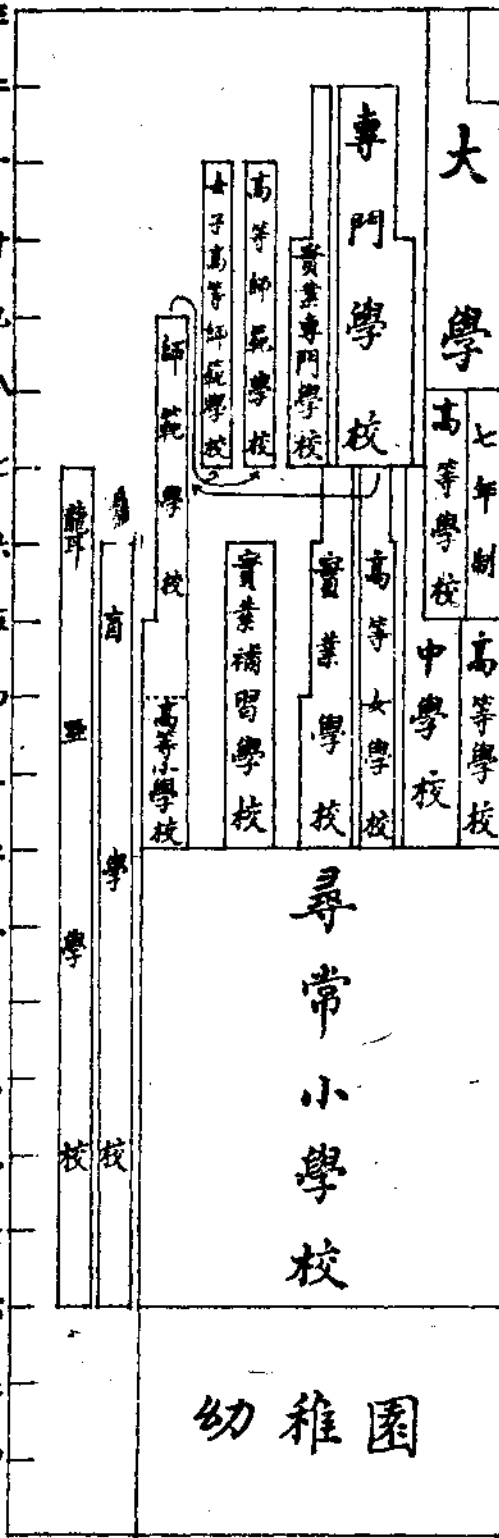 大學
專門學校
實業專門學校
高等師範學校
女子高等師範學校
師範學校
七年制
高等學校
高等學校
中學校
高等女學校
實業學校
實業補習學校
高等小學校
盲學校
聾啞學校
尋常小學校
幼稚園